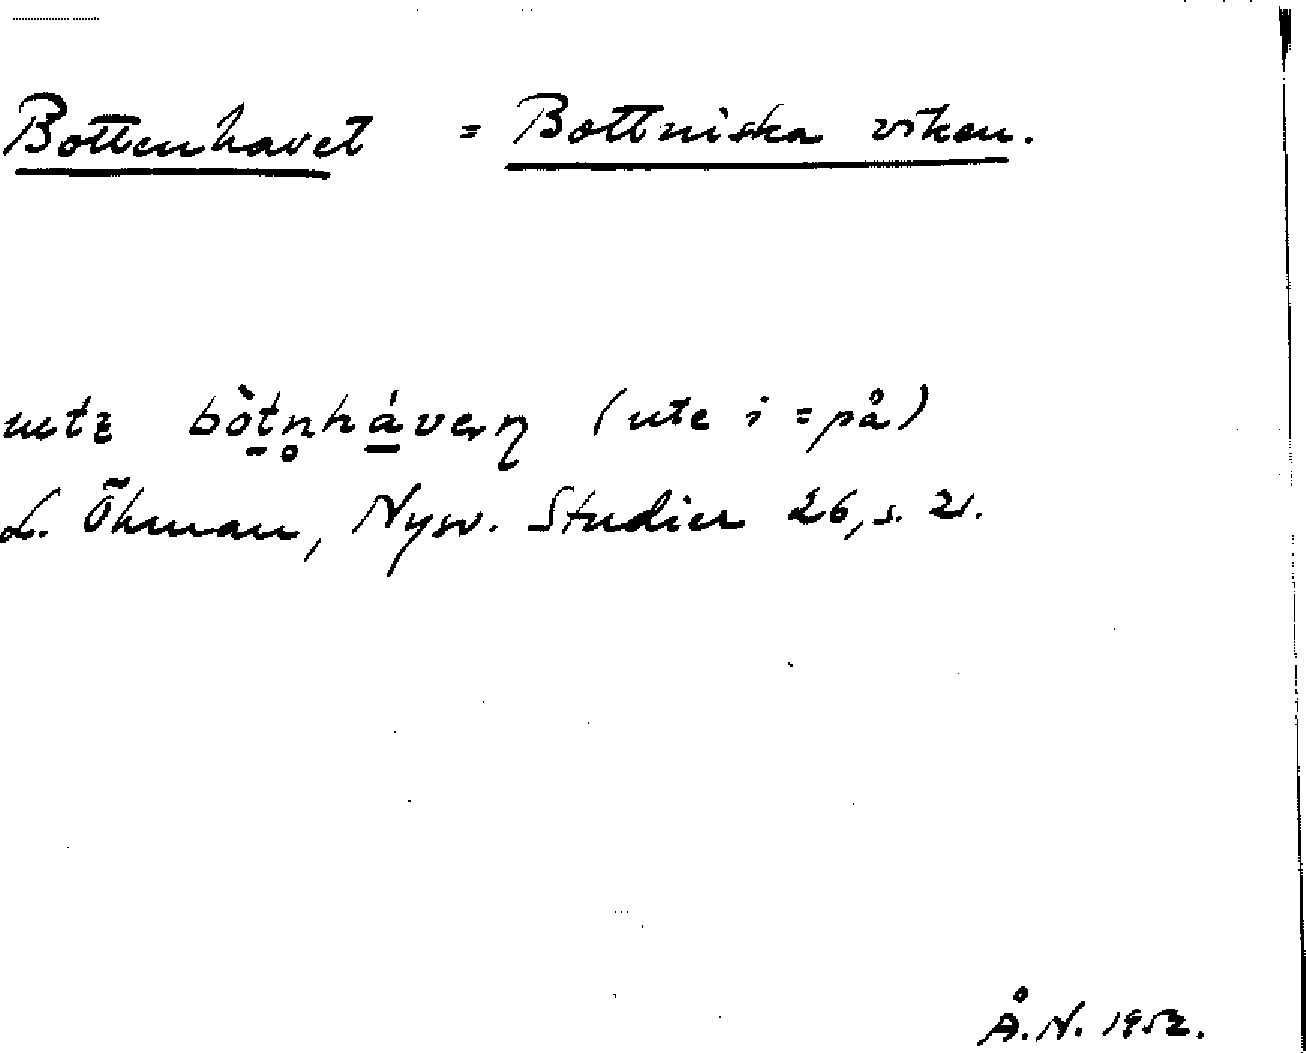 Bottenhavet = Bottniska viken.
bòtn̥hávęṇ (ute i = på)
d. Öhman, Nysv. Studier 26, s. 21.
Å.N. 1952.